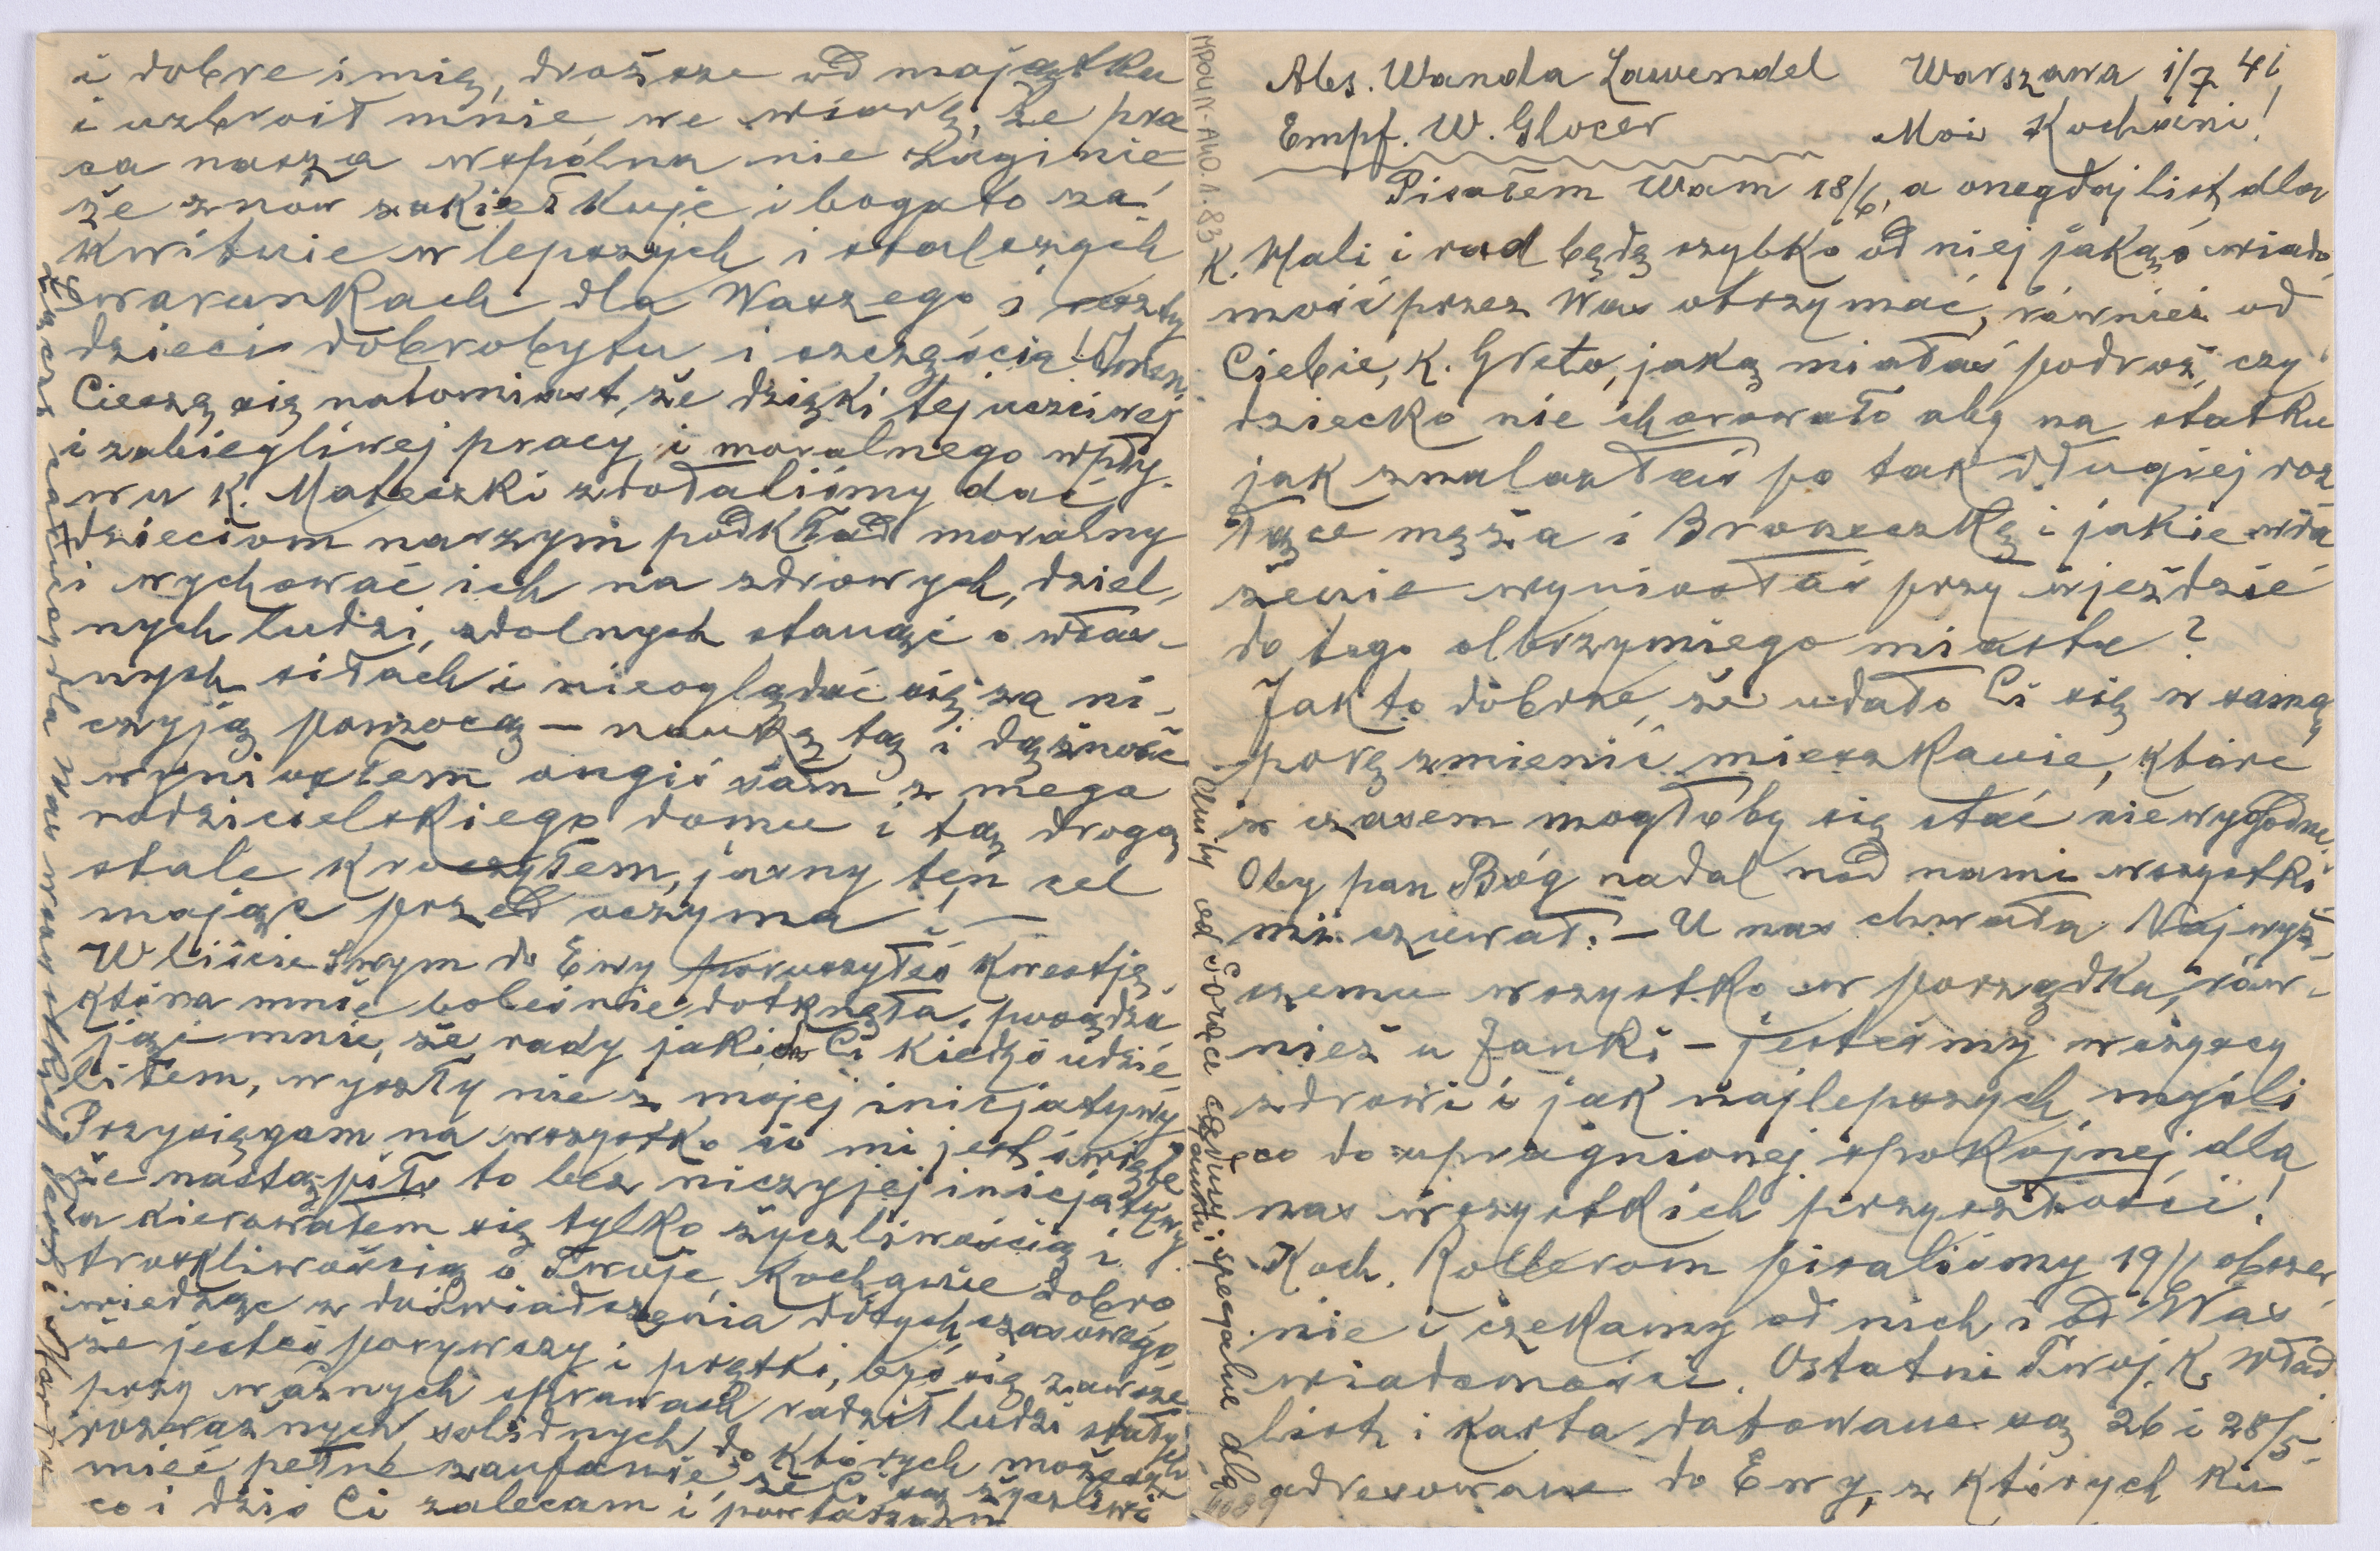 Abs. Wanda Lawendel Warszawa 1/7 41
Empf. W. Glocer Moi Kochani!
Pisałem Wam 18/6, a onegdaj list dla
K. Mali i rad będę szybko od niej jakąś wiado
mość przez Was otrzymać, również od
Ciebie, K. Greto, jaką miałaś podroż, czy
dziecko nie chorowało aby na statku
jak znalazłaś po tak długiej roz
łące męża i Broneczkę i jakie wra
żenie wyniosłaś przy wjeździe
do tego olbrzymiego miasta?
Jak to dobrze, że udało Ci się w samą
porę zmienić mieszkanie, które
z czasem mogłoby się stać niewygodne.
Oby pan Bóg nadal nad nami wszystki
mi czuwał. – U nas chwała Najwyż-
szemu wszystko w porządku, rów-
nież u Janki – jesteśmy wszyscy
zdrowi i jak najlepszych myśli
co do upragnionej spokojnej dla
nas wszystkich przyszłości!
Koch. Rollerom pisaliśmy 19/6 obszer
nie i czekamy od nich i od Was
wiadomości. Ostatni Twoj, K. Wład.
list i karta datowane są 26 i 28/5
adresowane do Ewy, z których
i dobre imię, droższe od majątku
i uzbroił mnie we wiarę, że pra
ca nasza wspólna nie zaginie
że znów zakiełkuje i bogato za-
kwitnie w lepszych i stalszych
warunkach dla Waszego i reszty
dzieci dobrobytu i szczęścia! Amen.
Cieszę się natomiast, że dzięki tej uczciwej
i zabiegliwej pracy i moralnego wpły-
wu K. Mateczki zdołaliśmy dać
dzieciom naszym podkład moralny
i wychować ich na zdrowych, dziel-
nych ludzi, zdolnych stanąć o włas-
nych siłach i nieoglądać się za ni-
czyją pomocą – naukę tą i dążność
wyniosłem ongiś sam z mego
rodzicielskiego domu i tą drogą
stale kroczyłem, jasny ten cel
mając przed oczyma! –
W liście Swym do Ewy poruszyłeś kwestję
która mnie boleśnie dotknęła,
że rady jakich Ci kiedyś udzie-
liłem, wyszły nie z mojej inicjatywy
Przysięgam na wszystko co mi jest święte
że nastąpiło to bez niczyjej inicjatywy
a kierowałem się tylko życzliwością i
troskliwością o Twoje, Kochanie dobro
wiedząc z doświadczenia dotychczasowego,
że jesteś porywczy i prętki, byś się zawsze
przy ważnych sprawach radził ludzi stałych
rozważnych solidnych do których możesz
mieć pełne zaufanie, że Ci są życzliwi
co i dziś Ci zalecam i powtarzam
od Serce całusy specjalne dla
całusy dla Was wszystkich
MPOLIN-A40.1.83